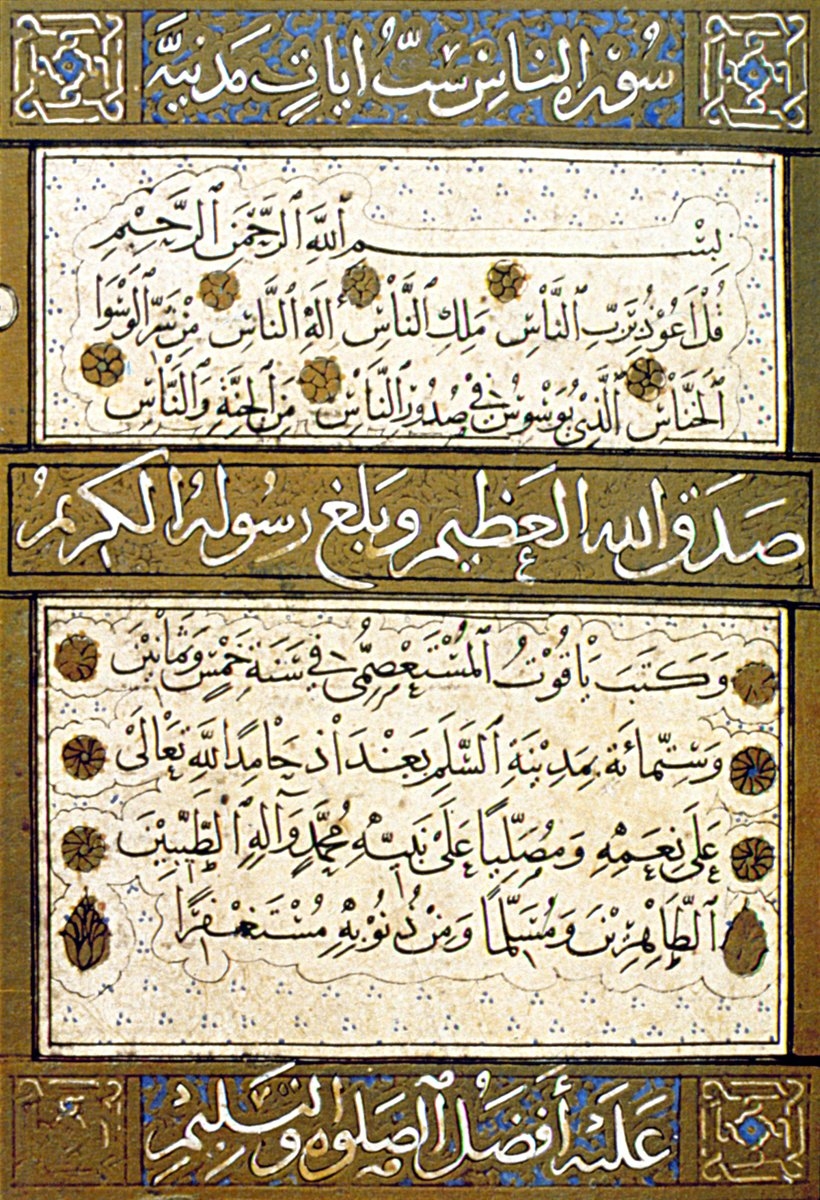 سُورَة النَّاسِ سِتُّ ايَاتٍ مَدَنِيَّة
بِسْمِ ٱللَّهِ ٱلرَّحْمَنِ ٱلرَّحِيمِ
قُلْ أَعُوذُ بِرَبِّ ٱلنَّاسِ مَلِكِ ٱلنَّاسِ إِلَهِ ٱلنَّاسِ مِنْ شَرِّ ٱلْوَسْوَا
ٱلْخَنَّاسِ ٱلَّذِي يُوَسْوِسُ فِي صُدُورِ ٱلنَّاسِ مِنَ ٱلْجِنَّةِ وَٱلنَّاسِ
صَدَقَ الله العَظِيم وَبَلغ رسُولهُ الكَريمُ
وَكَتَبَ يَاقُوتُ ٱلْمُسْتَعْصِمِيُّ فِي سَنَةِ خَمْسٍ وَثَمَانِيْنَ
وَسِتِّمِائَة بِمَدِيْنَةِ ٱلسَّلَمِ بَغْدَاذ حَامِدًا لِلَّهِ تَعْالَىْ
عَلَى نِعَمِهِ وَمُصَلِّيًا عَلَى نَبِيِّهِ مُحَمَّدٍ وَآلِهِ ٱلطَّيِّبِيْنَ
ٱلطَّاهِرِيْنَ وَمُسَلِّمًا وَمِنْ ذُنُوْبِهِ مُسْتَغْفِرًا
عَلَيْهِ أَفْضَلُ ٱلصَّلوةِ وَالتسْلِيْمِ